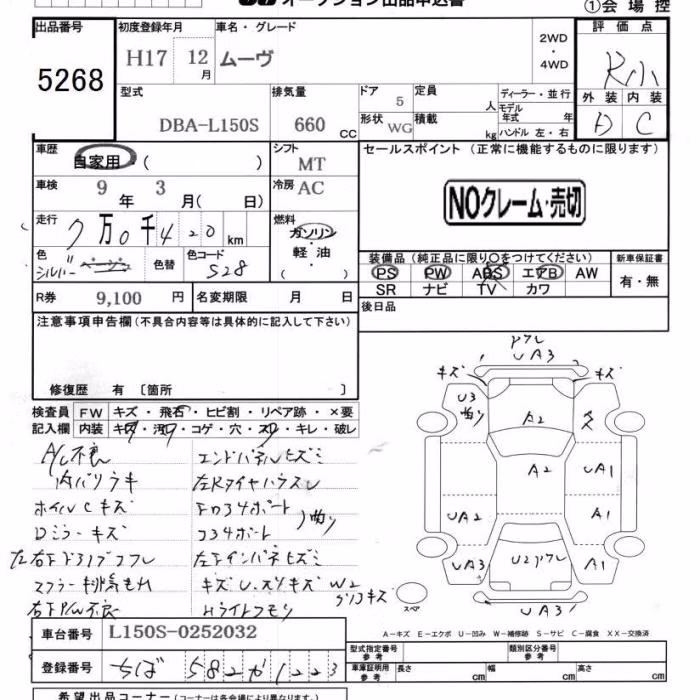 オークション出品申込書 ①会場控
出品番号 初度登録年月 車名・グレード 評価点
5268 H17 12月 ムーヴ 2WD・4WD R小
型式 排気量 ドア 定員 ディーラー・並行 外装 内装
DBA-L150S 660 CC 5 人 モデル年式 年 D C
形状 WG 積載 kg ハンドル 左・右
車歴 自家用・( ) シフト MT セールスポイント (正常に機能するものに限ります)
車検 9年 3月( 日) 冷房 AC NOクレーム・売切
走行 7万0千420km 燃料 ガソリン・軽油・( )
色 シルバー 色替 色コード S28
装備品 (純正品に限り○をつけてください) 新車保証書
PS PW ABS エアB AW 有・無
SR ナビ TV カワ
R券 9,100円 名変期限 月 日 後日品
注意事項申告欄(不具合内容等は具体的に記入して下さい)
修復歴 有 〔箇所 〕
検査員記入欄 FW キズ・飛石・ヒビ割・リペア跡・×要
内装 キズ・汚レ・コゲ・穴・スレ・キレ・破レ
A/C不良 エンドパネルヒズミ
内バリウキ 左Rタイヤハウス
ホイルCキズ コヨ4ポート
Dミラーキズ
マフラー排気もれ
右下P/W不良 Hライトクモリ
アクレ
UA3
キズ キズ
U3 曲り A2
A2 UA1
UA2 A1
UA3 U2アクレ A1
スペア UA3
A-キズ E-エクボ U-凹み W-補修跡 S-サビ C-腐食 XX-交換済
車台番号 L150S-0252032 型式指定番号 参考 類別区分番号 参考
登録番号 ちば 582か1223 車庫証明用 参考 長さ cm 幅 cm 高さ cm
希望出品コーナー (コーナーは各会場により異なります。)